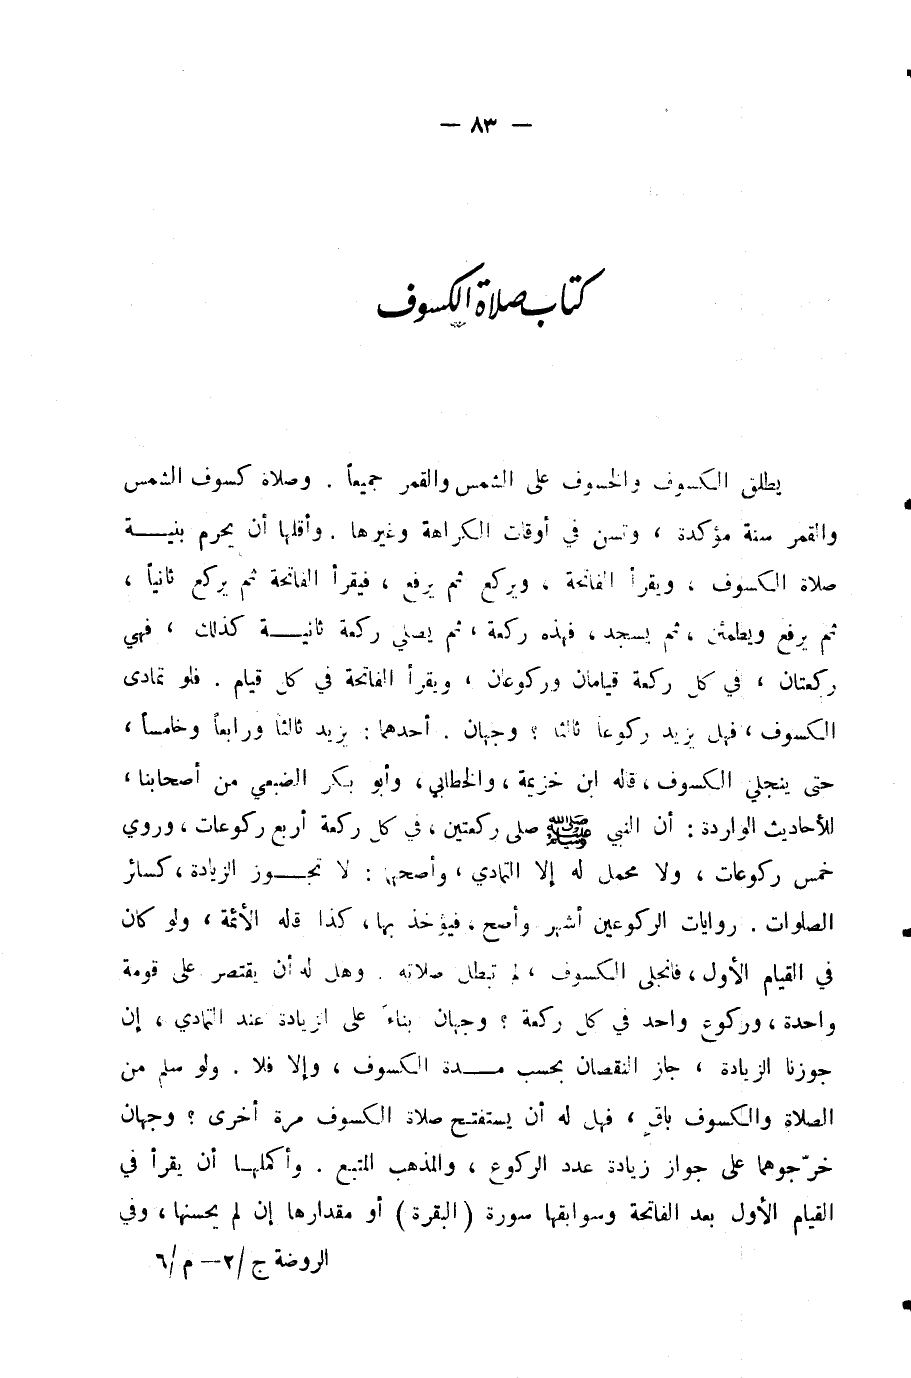 — ٨٣ —
كتاب صلاة الكسوف
يطلق الكسوف والخسوف على الشمس والقمر جميعاً . وصلاة كسوف الشمس
والقمر سنة مؤكدة ، وتسن في أوقات الكراهة وغيرها . وأقلها أن يحرم بنيـــة
صلاة الكسوف ، ويقرأ الفاتحة ، ويركع ثم يرفع ، فيقرأ الفاتحة ثم يركع ثانياً ،
ثم يرفع ويطمئن ، ثم يسجد ، فهذه ركعة ، ثم يصلي ركعة ثانيـــة كذلك ، فهي
ركعتان ، في كل ركعة قيامان وركوعان ، ويقرأ الفاتحة في كل قيام . فلو تمادى
الكسوف ، فهل يزيد ركوعاً ثالثاً ؟ وجهان . أحدهما : يزيد ثالثاً ورابعاً وخامساً ،
حتى ينجلي الكسوف ، قاله ابن خزيمة ، والخطابي ، وأبو بكر الضبعي من أصحابنا ،
للأحاديث الواردة : أن النبي ﷺ صلى ركعتين ، في كل ركعة أربع ركوعات ، وروي
خمس ركوعات ، ولا محمل له إلا التمادي ، وأصحها : لا تجـــوز الزيادة ، كسائر
الصلوات . روايات الركوعين أشهر وأصح ، فيؤخذ بها ، كذا قاله الأئمة ، ولو كان
في القيام الأول ، فانجلى الكسوف ، لم تبطل صلاته . وهل له أن يقتصر على قومة
واحدة ، وركوع واحد في كل ركعة ؟ وجهان بناءً على الزيادة عند التمادي ، إن
جوزنا الزيادة ، جاز النقصان بحسب مـــدة الكسوف ، وإلا فلا . ولو سلم من
الصلاة والكسوف باقٍ ، فهل له أن يستفتح صلاة الكسوف مرة أخرى ؟ وجهان
خرّجوهما على جواز زيادة عدد الركوع ، والمذهب المنع . وأكملهـا أن يقرأ في
القيام الأول بعد الفاتحة وسوابقها سورة ( البقرة ) أو مقدارها إن لم يحسنها ، وفي
الروضة ج /٢ – م /٦